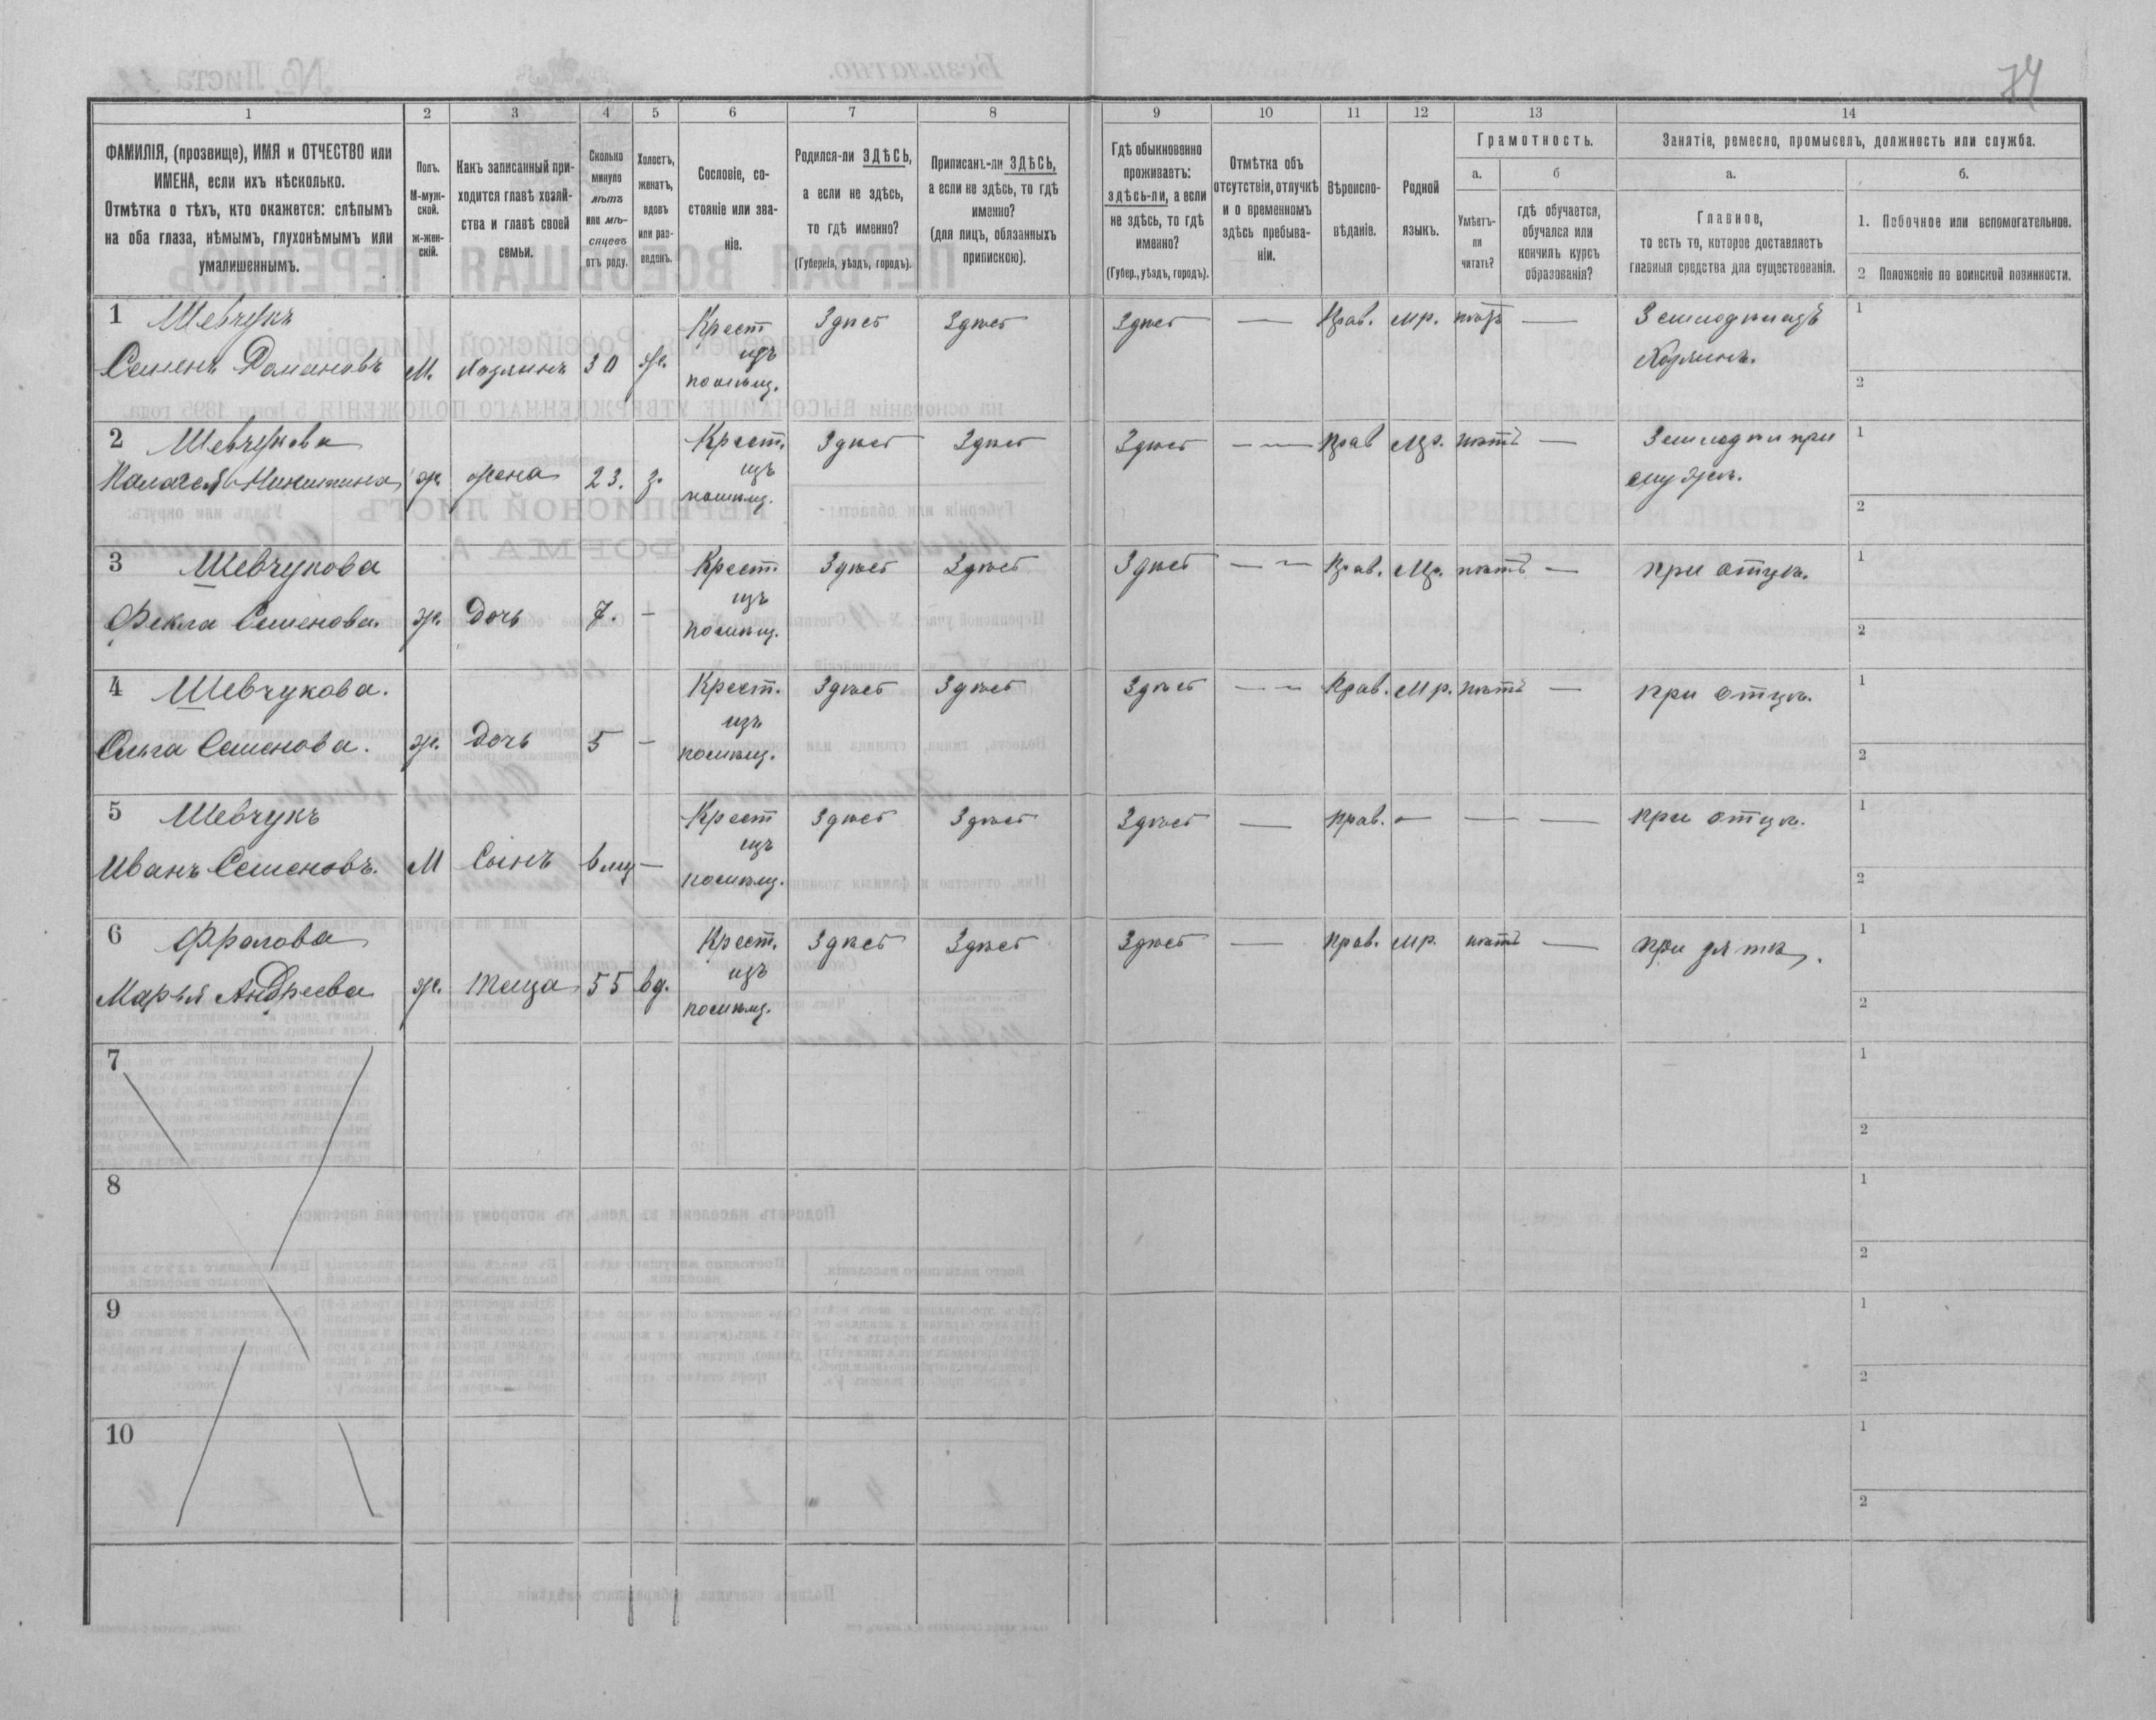 74
1
2
3
4
5
6
7
8
9
10
11
12
13
14
ФАМИЛІЯ, (прозвище), ИМЯ и ОТЧЕСТВО или
ИМЕНА, если ихъ нѣсколько.
Отмѣтка о тѣхъ, кто окажется: слѣпымъ
на оба глаза, нѣмымъ, глухонѣмымъ или
умалишеннымъ.
Полъ.
М-муж-
ской.
ж-жен-
скій.
Какъ записанный при-
ходится главѣ хозяй-
ства и главѣ своей
семьи.
Сколько
минуло
лѣтъ
или мѣ-
сяцевъ
отъ роду.
Холостъ,
женатъ,
вдовъ
или раз-
веденъ.
Сословіе, со-
стояніе или зва-
ніе.
Родился-ли ЗДѢСЬ,
а если не здѣсь,
то гдѣ именно?
(Губернія, уѣздъ, городъ).
Приписанъ-ли ЗДѢСЬ,
а если не здѣсь, то гдѣ
именно?
(для лицъ, обязанныхъ
припискою).
Гдѣ обыкновенно
проживаетъ:
здѣсь-ли, а если
не здѣсь, то гдѣ
именно?
(Губер., уѣздъ, городъ).
Отмѣтка объ
отсутствіи, отлучкѣ
и о временномъ
здѣсь пребыва-
ніи.
Вѣроиспо-
вѣданіе.
Родной
языкъ.
Грамотность.
а.
Умѣетъ-
ли
читать?
б
гдѣ обучается,
обучался или
кончилъ курсъ
образованія?
Занятіе, ремесло, промыселъ, должность или служба.
а.
Главное,
то есть то, которое доставляетъ
главныя средства для существованія.
б.
1. Побочное или вспомогательное.
2 Положеніе по воинской повинности.
1 Шевчукъ
Семенъ Романовъ М. Хозяинъ 30 ж. Крест изъ помѣщ. Здѣсь Здѣсь Здѣсь — Прав. мр. нѣтъ — Земледѣлецъ
Хозяинъ.
1
2
2 Шевчукова
Палагея Никитина ж. жена 23. з. Крест. изъ помѣщ. Здѣсь Здѣсь Здѣсь — — Прав мр. нѣтъ — Земледѣл при
мужѣ.
1
2
3 Шевчукова
Фекла Семенова. ж. Дочь 7. — Крест. изъ помѣщ. Здѣсь Здѣсь Здѣсь — — Прав. мр. нѣтъ — при отцѣ.
1
2
4 Шевчукова.
Ольга Семенова. ж. Дочь 5 — Крест. изъ помѣщ. Здѣсь Здѣсь Здѣсь — — Прав. мр. нѣтъ — при отцѣ.
1
2
5 Шевчукъ
Иванъ Семеновъ. М Сынъ 6 мц — Крест изъ помѣщ. Здѣсь Здѣсь Здѣсь — прав. — — — при отцѣ.
1
2
6 Фролова
Марья Андреева ж. теща 55 вд. Крест. изъ помѣщ. Здѣсь Здѣсь Здѣсь — прав. мр. нѣтъ — при зятѣ.
1
2
7
1
2
8
1
2
9
1
2
10
1
2